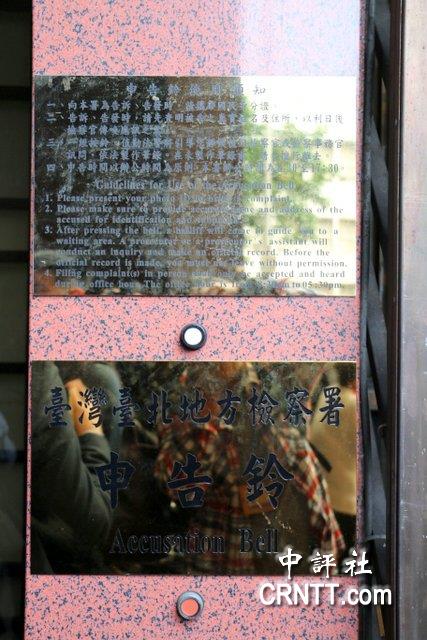 申告鈴使用須知
一、向本署為告訴、告發時，請攜帶國民身分證。
二、告訴、告發時，請先查明被告之真實姓名及住所，以利日後
檢察官傳喚
三、
訊問，依法製作筆錄，在未製作筆錄
四、申告時間以辦公時間為原則，17:30。
Guidelines for Use of the Accusation Bell
1. Please present your photo ID to file a complaint.
2. Please make sure to provide accurate name and address of the
accused for identification and subpoena.
3. After pressing the bell, a bailiff will come to guide you to a
waiting area. A prosecutor or a prosecutor's assistant will
conduct an inquiry and make an official record. Before the
official record is made, you must not leave without permission.
4. Filing complaint(s) in person will only be accepted and heard
during office hour. The office hour is from to 05:30pm.
臺灣臺北地方檢察署
申告鈴
Accusation Bell
中評社
CRNTT.com